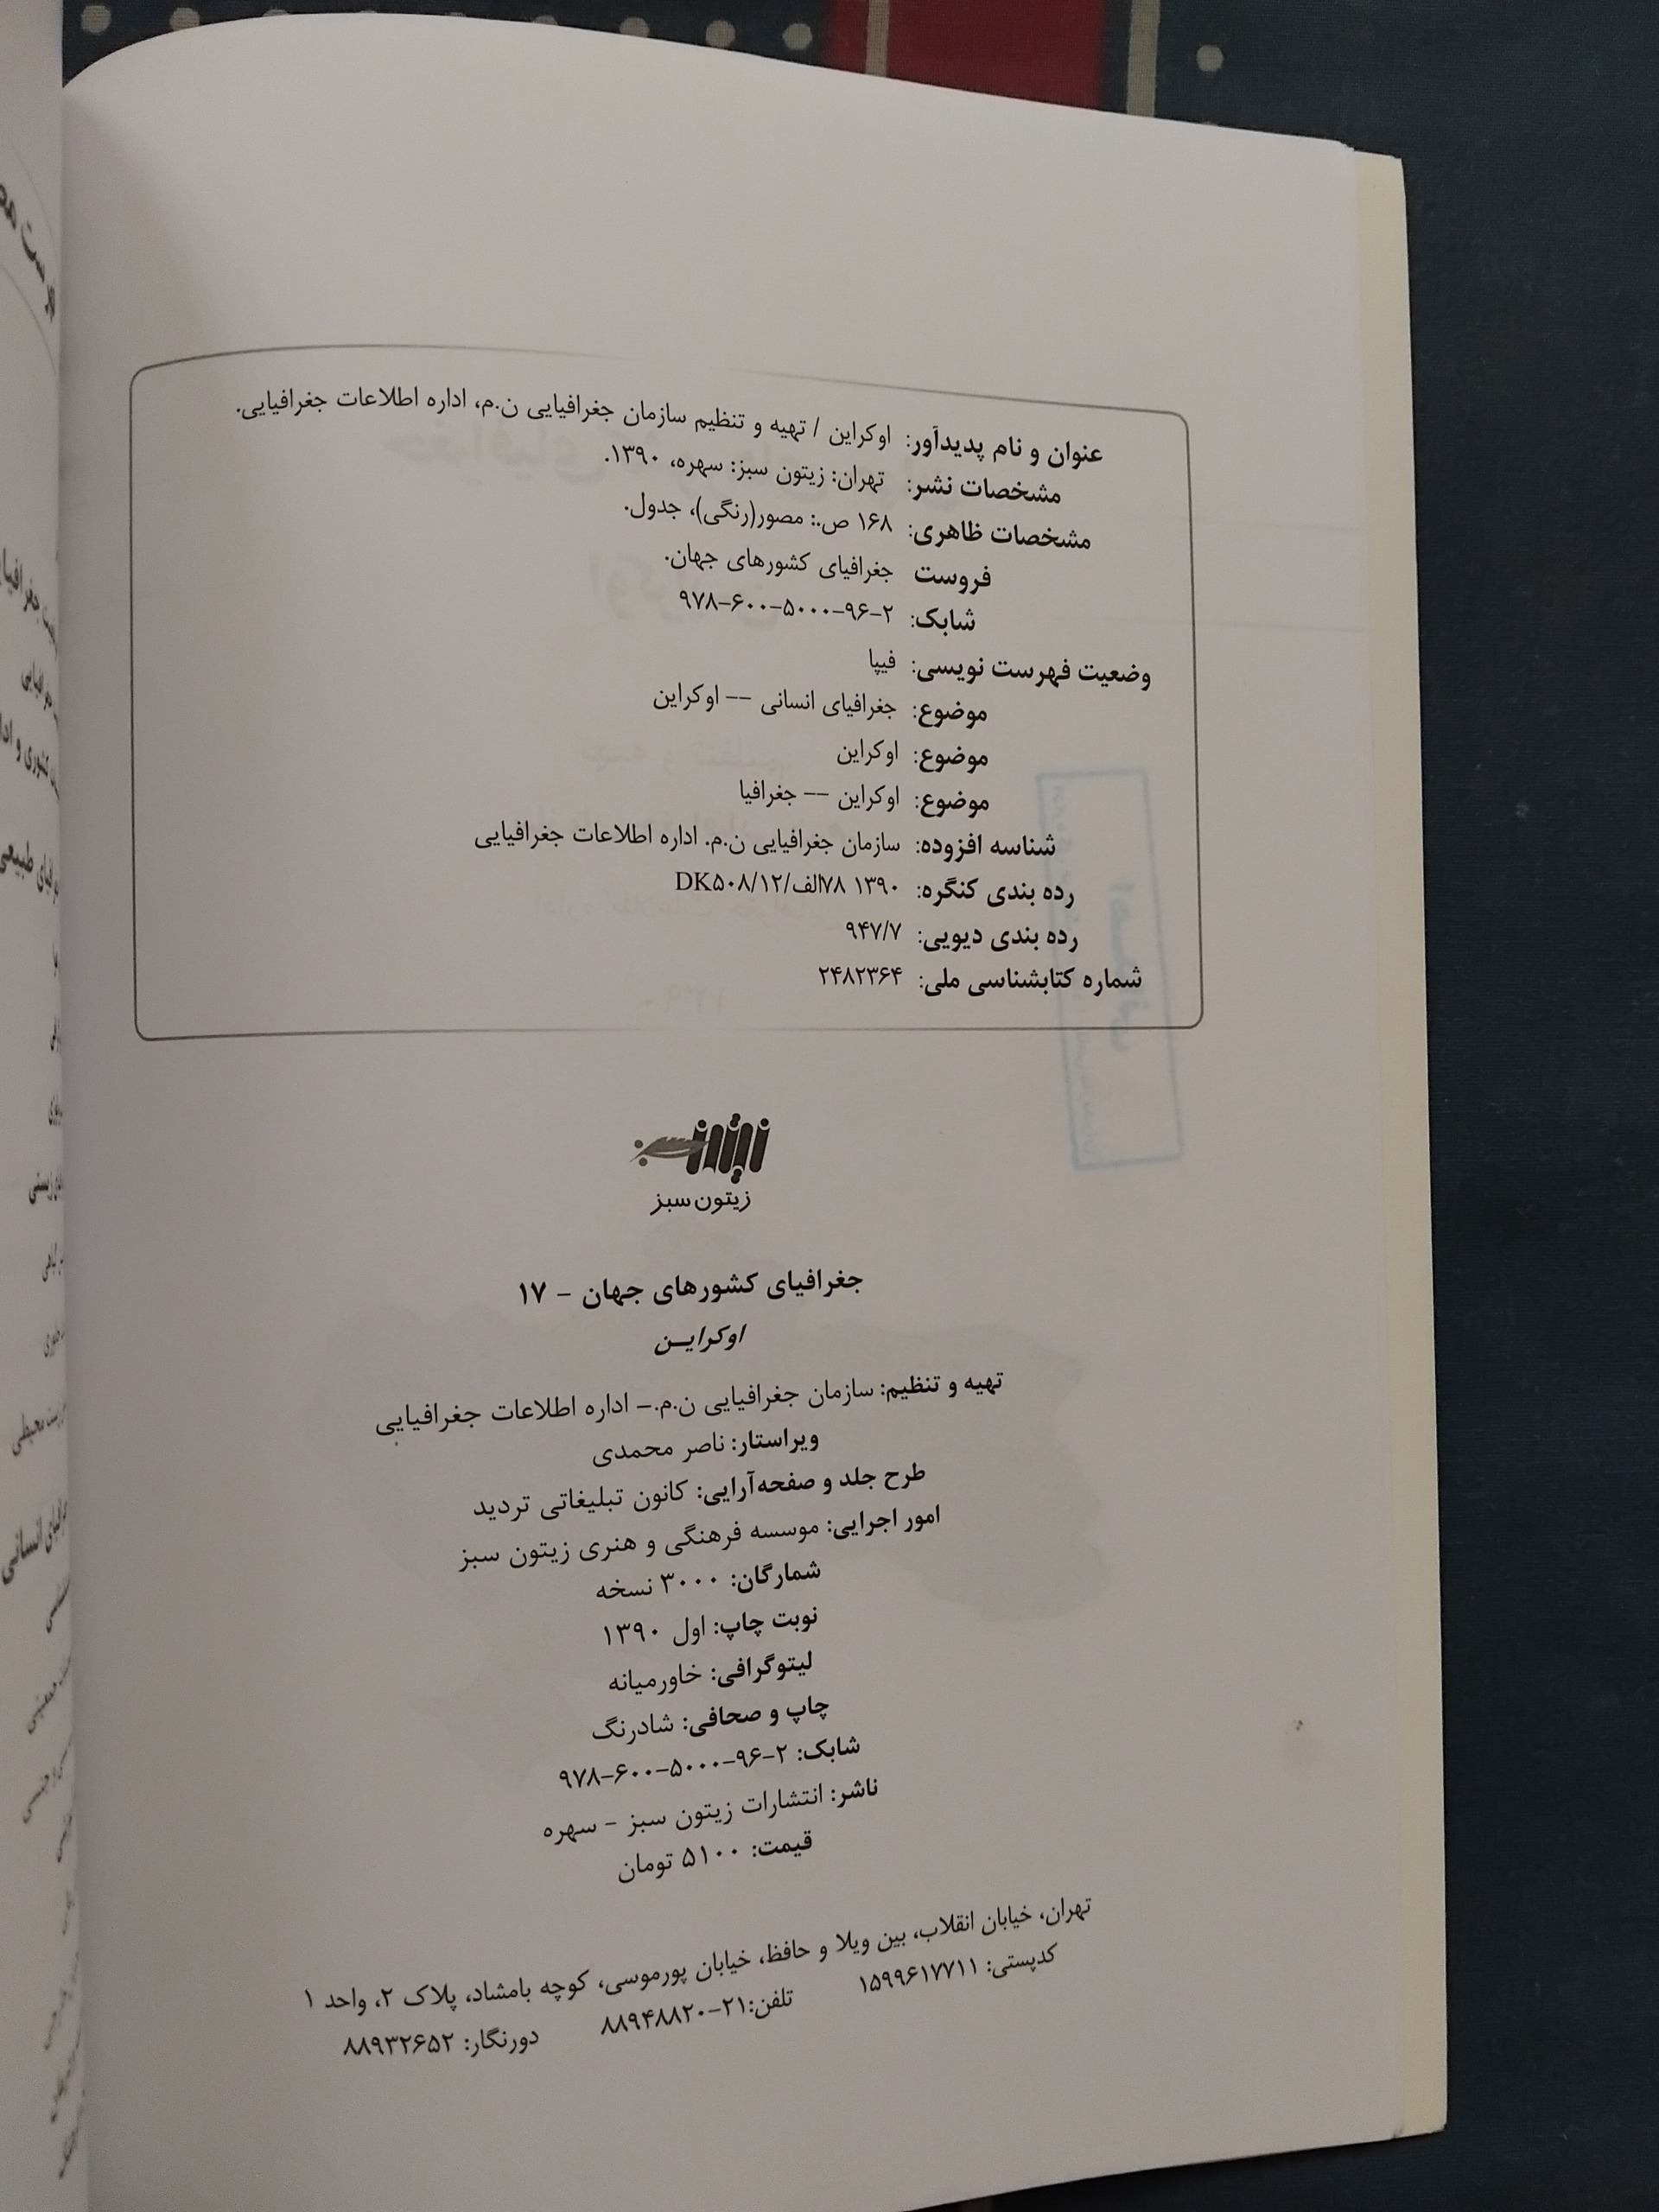 عنوان و نام پدیدآور: اوکراین / تهیه و تنظیم سازمان جغرافیایی ن.م، اداره اطلاعات جغرافیایی.
مشخصات نشر: تهران: زیتون سبز: سهره، ۱۳۹۰.
مشخصات ظاهری: ۱۶۸ ص.: مصور(رنگی)، جدول.
فروست جغرافیای کشورهای جهان.
شابک: ۹۷۸-۶۰۰-۵۰۰۰-۹۶-۲
وضعیت فهرست نویسی: فیپا
موضوع: جغرافیای انسانی -- اوکراین
موضوع: اوکراین
موضوع: اوکراین -- جغرافیا
شناسه افزوده: سازمان جغرافیایی ن.م. اداره اطلاعات جغرافیایی
رده بندی کنگره: ۱۳۹۰ ۷۸الف/۱۲/DK۵۰۸
رده بندی دیویی: ۹۴۷/۷
شماره کتابشناسی ملی: ۲۴۸۲۳۶۴
زیتون سبز
زیتون سبز
جغرافیای کشورهای جهان - ۱۷
اوکرایـن
تهیه و تنظیم: سازمان جغرافیایی ن.م.- اداره اطلاعات جغرافیایی
ویراستار: ناصر محمدی
طرح جلد و صفحه‌آرایی: کانون تبلیغاتی تردید
امور اجرایی: موسسه فرهنگی و هنری زیتون سبز
شمارگان: ۳۰۰۰ نسخه
نوبت چاپ: اول ۱۳۹۰
لیتوگرافی: خاورمیانه
چاپ و صحافی: شادرنگ
شابک: ۹۷۸-۶۰۰-۵۰۰۰-۹۶-۲
ناشر: انتشارات زیتون سبز - سهره
قیمت: ۵۱۰۰ تومان
تهران، خیابان انقلاب، بین ویلا و حافظ، خیابان پورموسی، کوچه بامشاد، پلاک ۲، واحد ۱
کدپستی: ۱۵۹۹۶۱۷۷۱۱ تلفن:۲۱-۸۸۹۴۸۸۲۰ دورنگار: ۸۸۹۳۲۶۵۲